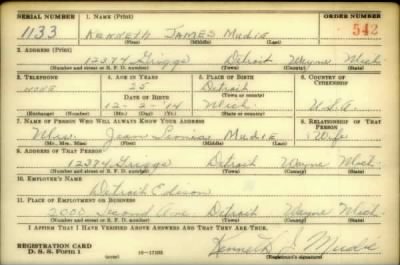 SERIAL NUMBER 1. NAME (Print) ORDER NUMBER
1133 Kenneth James Mudie 542
(First) (Middle) (Last)
2. ADDRESS (Print)
12374 Griggs Detroit Wayne Mich.
(Number and street or R. F. D. number) (Town) (County) (State)
3. TELEPHONE 4. AGE IN YEARS 5. PLACE OF BIRTH 6. COUNTRY OF CITIZENSHIP
none 25 Detroit
DATE OF BIRTH (Town or county)
12-2-'14 Mich. U.S.A.
(Exchange) (Number) (Mo.) (Day) (Yr.) (State or country)
7. NAME OF PERSON WHO WILL ALWAYS KNOW YOUR ADDRESS 8. RELATIONSHIP OF THAT PERSON
Mrs. Jean Mudie Wife
(Mr., Mrs., Miss) (First) (Middle) (Last)
9. ADDRESS OF THAT PERSON
12374 Griggs Detroit Wayne Mich.
(Number and street or R. F. D. number) (Town) (County) (State)
10. EMPLOYER'S NAME
Detroit Edison
11. PLACE OF EMPLOYMENT OR BUSINESS
2000 Ave Detroit Wayne Mich.
(Number and street or R. F. D. number) (Town) (County) (State)
I AFFIRM THAT I HAVE VERIFIED ABOVE ANSWERS AND THAT THEY ARE TRUE.
REGISTRATION CARD
D. S. S. Form 1 (over) Kenneth J. Mudie
(Registrant's signature)